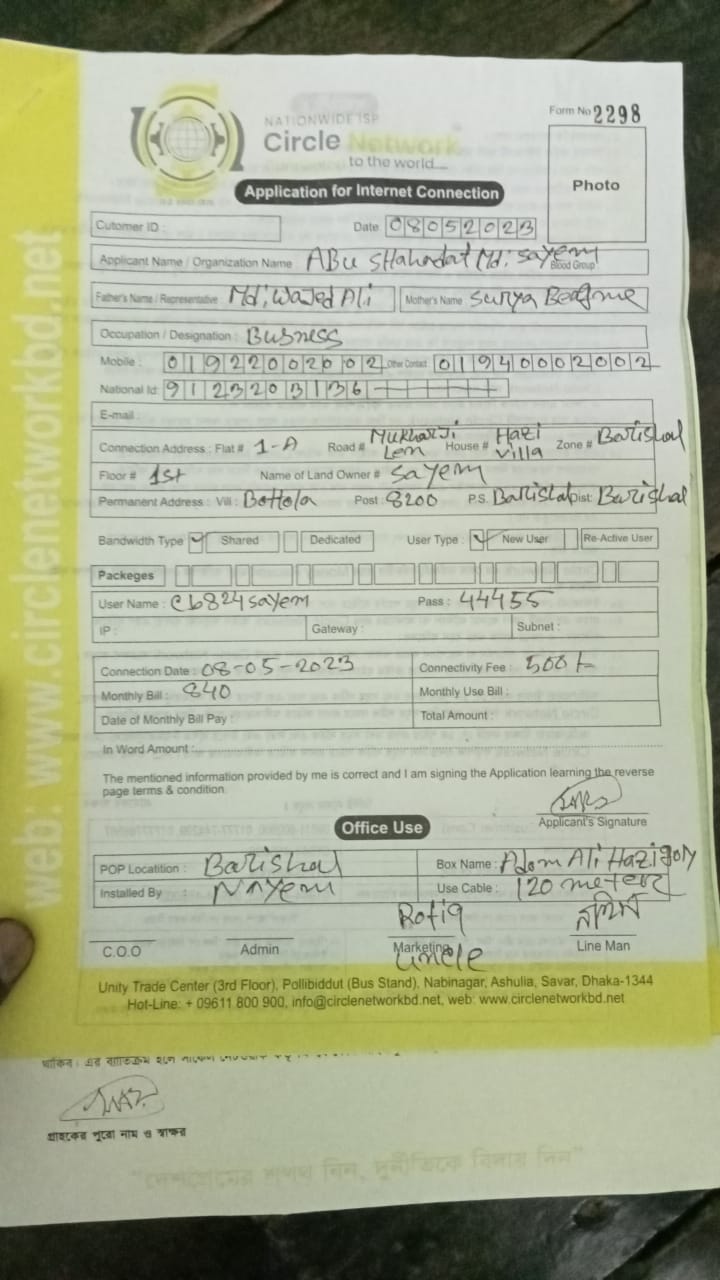 NATIONWIDE ISP
Circle Network
to the world....
Form No 2298
Photo
Application for Internet Connection
Cutomer ID :
Date 08052023
Applicant Name / Organization Name ABu SHahadat Md: Sayem
Blood Group:
Father's Name / Representative Md: Wajed Ali Mother's Name Surya Beagme
Occupation / Designation : Busness
Mobile : 01922002002 Other Contact: 01940002002
National Id: 9123203136
E-mail
Connection Address : Flat # 1-A Road # Mukharji Len House # Hazi Villa Zone # Barishal
Floor # 1st Name of Land Owner # Sayem
Permanent Address : Vill : Bottola Post 8200 P.S. Barishal Dist: Barishal
Bandwidth Type Shared Dedicated User Type : New User Re-Active User
Packeges
User Name : cb824sayem Pass : 44455
IP : Gateway : Subnet :
Connection Date : 08-05-2023 Connectivity Fee : 500/-
Monthly Bill : 840 Monthly Use Bill :
Date of Monthly Bill Pay : Total Amount :
In Word Amount :
The mentioned information provided by me is correct and I am signing the Application learning the reverse
page terms & condition
Applicant's Signature
Office Use
POP Locatition : Barishal Box Name : Adom Ali Hazi goly
Installed By : Nayem Use Cable : 120 meter
Rofiq
C.O.O Admin Marketing Line Man
Unity Trade Center (3rd Floor), Pollibiddut (Bus Stand), Nabinagar, Ashulia, Savar, Dhaka-1344
Hot-Line: + 09611 800 900, info@circlenetworkbd.net, web: www.circlenetworkbd.net
web: www.circlenetworkbd.net
গ্রাহকের পুরো নাম ও স্বাক্ষর
"দেশপ্রেমের শপথ নিন, দুর্নীতিকে বিদায় দিন"